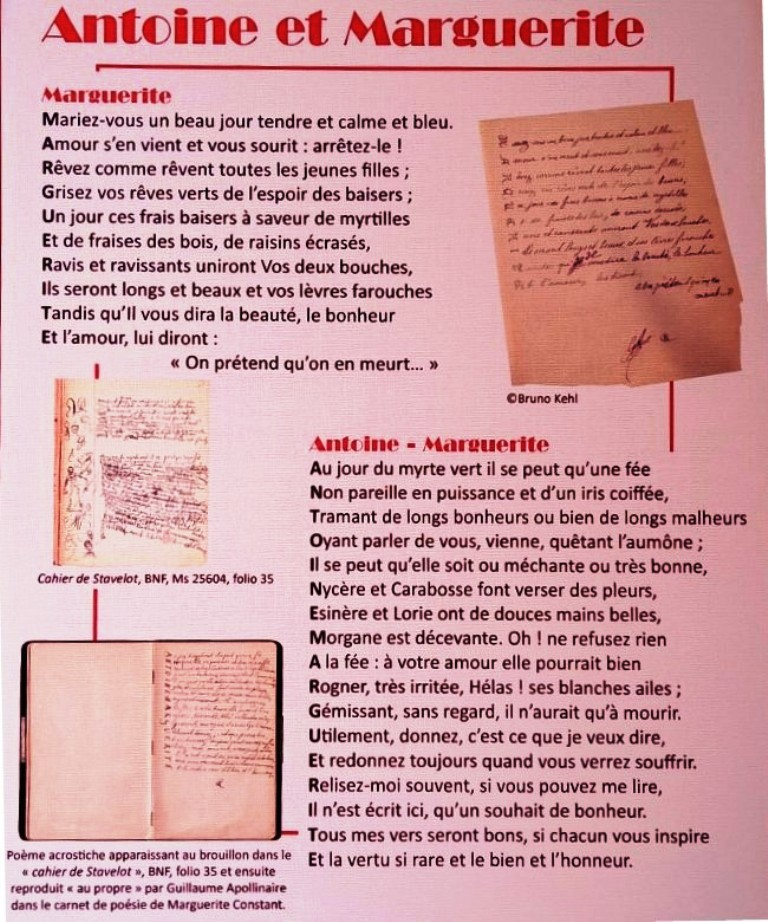 Antoine et Marguerite
Marguerite
Mariez-vous un beau jour tendre et calme et bleu.
Amour s'en vient et vous sourit : arrêtez-le !
Rêvez comme rêvent toutes les jeunes filles ;
Grisez vos rêves verts de l'espoir des baisers ;
Un jour ces frais baisers à saveur de myrtilles
Et de fraises des bois, de raisins écrasés,
Ravis et ravissants uniront Vos deux bouches,
Ils seront longs et beaux et vos lèvres farouches
Tandis qu'Il vous dira la beauté, le bonheur
Et l'amour, lui diront :
« On prétend qu'on en meurt... »
©Bruno Kehl
Cahier de Stavelot, BNF, Ms 25604, folio 35
Antoine - Marguerite
Au jour du myrte vert il se peut qu'une fée
Non pareille en puissance et d'un iris coiffée,
Tramant de longs bonheurs ou bien de longs malheurs
Oyant parler de vous, vienne, quêtant l'aumône ;
Il se peut qu'elle soit ou méchante ou très bonne,
Nycère et Carabosse font verser des pleurs,
Esinère et Lorie ont de douces mains belles,
Morgane est décevante. Oh ! ne refusez rien
A la fée : à votre amour elle pourrait bien
Rogner, très irritée, Hélas ! ses blanches ailes ;
Gémissant, sans regard, il n'aurait qu'à mourir.
Utilement, donnez, c'est ce que je veux dire,
Et redonnez toujours quand vous verrez souffrir.
Relisez-moi souvent, si vous pouvez me lire,
Il n'est écrit ici, qu'un souhait de bonheur.
Tous mes vers seront bons, si chacun vous inspire
Et la vertu si rare et le bien et l'honneur.
Poème acrostiche apparaissant au brouillon dans le
« cahier de Stavelot », BNF, folio 35 et ensuite
reproduit « au propre » par Guillaume Apollinaire
dans le carnet de poésie de Marguerite Constant.